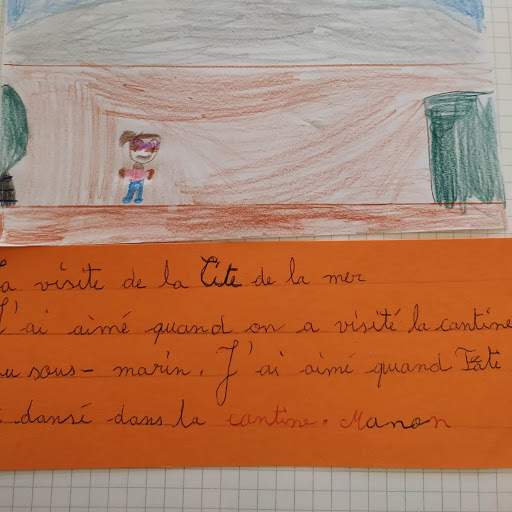 La visite de la Cité de la mer
J'ai aimé quand on a visité la cantine
du sous-marin. J'ai aimé quand
a dansé dans la cantine. Manon